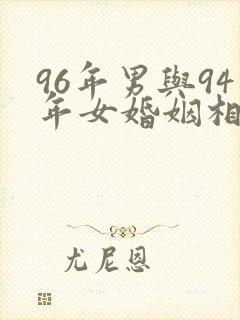 96年男與94
年女婚姻相
尤尼恩